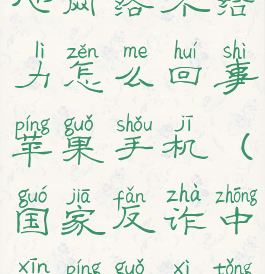 网络不给
lì zěn me huí shì
力怎么回事
píng guǒ shǒu jī
苹果手机（
guó jiā fǎn zhà zhōng
国家反诈中
xīn píng guǒ xì tǒng